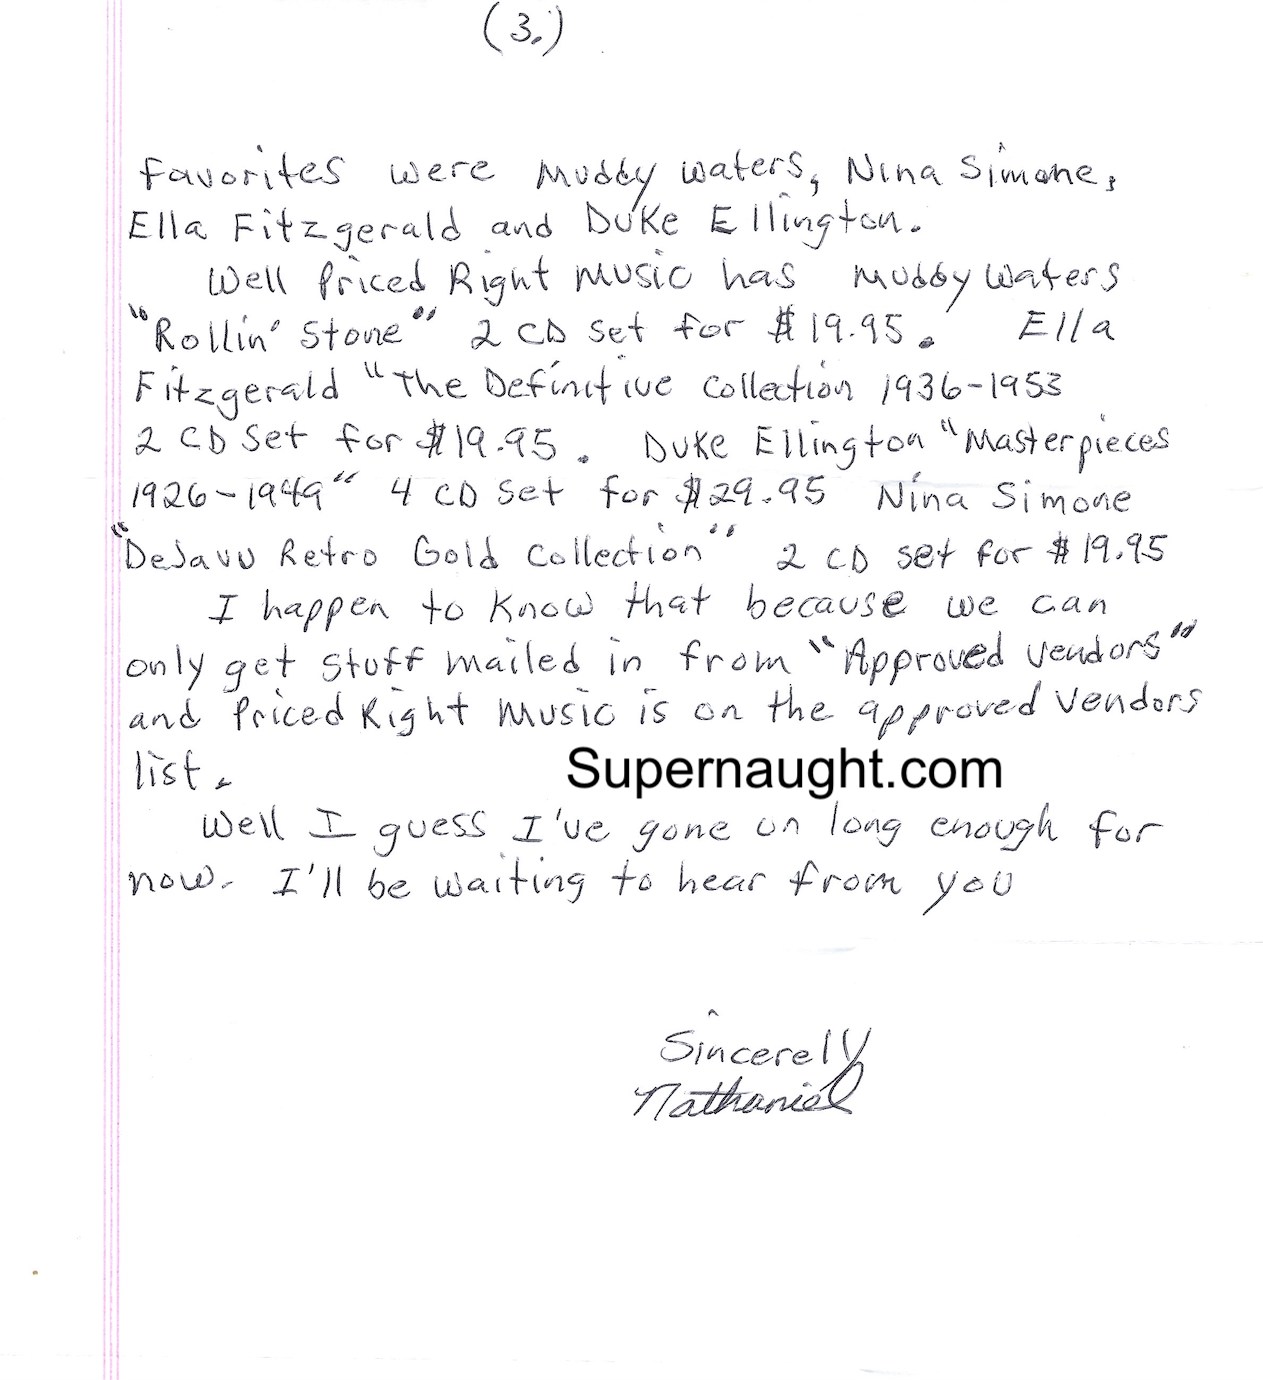 (3.)
favorites were Muddy Waters, Nina Simone,
Ella Fitzgerald and Duke Ellington.
Well Priced Right Music has Muddy Waters
"Rollin' Stone" 2 CD set for $19.95. Ella
Fitzgerald "The Definitive Collection 1936-1953
2 CD Set for $19.95. Duke Ellington "Masterpieces
1926-1949" 4 CD Set for $29.95 Nina Simone
"DeJavu Retro Gold Collection" 2 CD set for $19.95
I happen to know that because we can
only get stuff mailed in from "Approved vendors"
and Priced Right Music is on the approved vendors
list.
Supernaught.com
Well I guess I've gone on long enough for
now. I'll be waiting to hear from you
Sincerely
Nathaniel